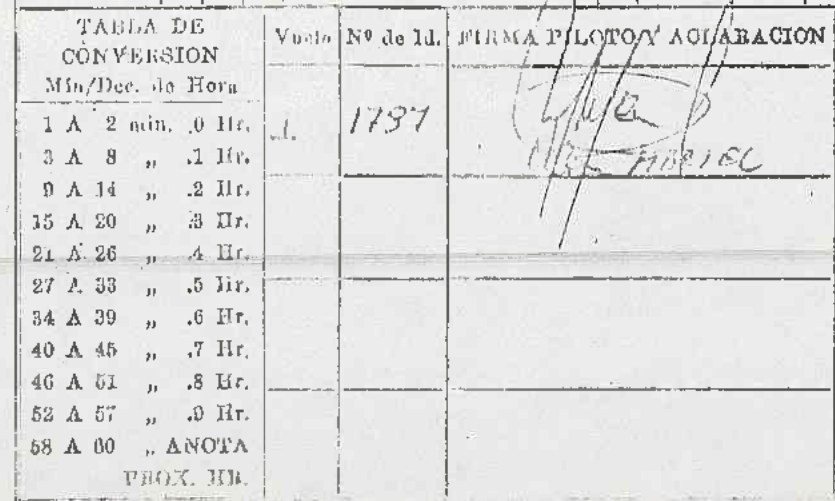 TABLA DE
CONVERSION
Min/Dec. de Hora
1 A 2 min. .0 Hr.
3 A 8 „ .1 Hr.
9 A 14 „ .2 Hr.
15 A 20 „ .3 Hr.
21 A 26 „ .4 Hr.
27 A 33 „ .5 Hr.
34 A 39 „ .6 Hr.
40 A 45 „ .7 Hr.
46 A 51 „ .8 Hr.
52 A 57 „ .9 Hr.
58 A 60 „ ANOTA
PROX. HR.
Vuelo Nº de Id. FIRMA PILOTO Y ACLARACION
1. 1737